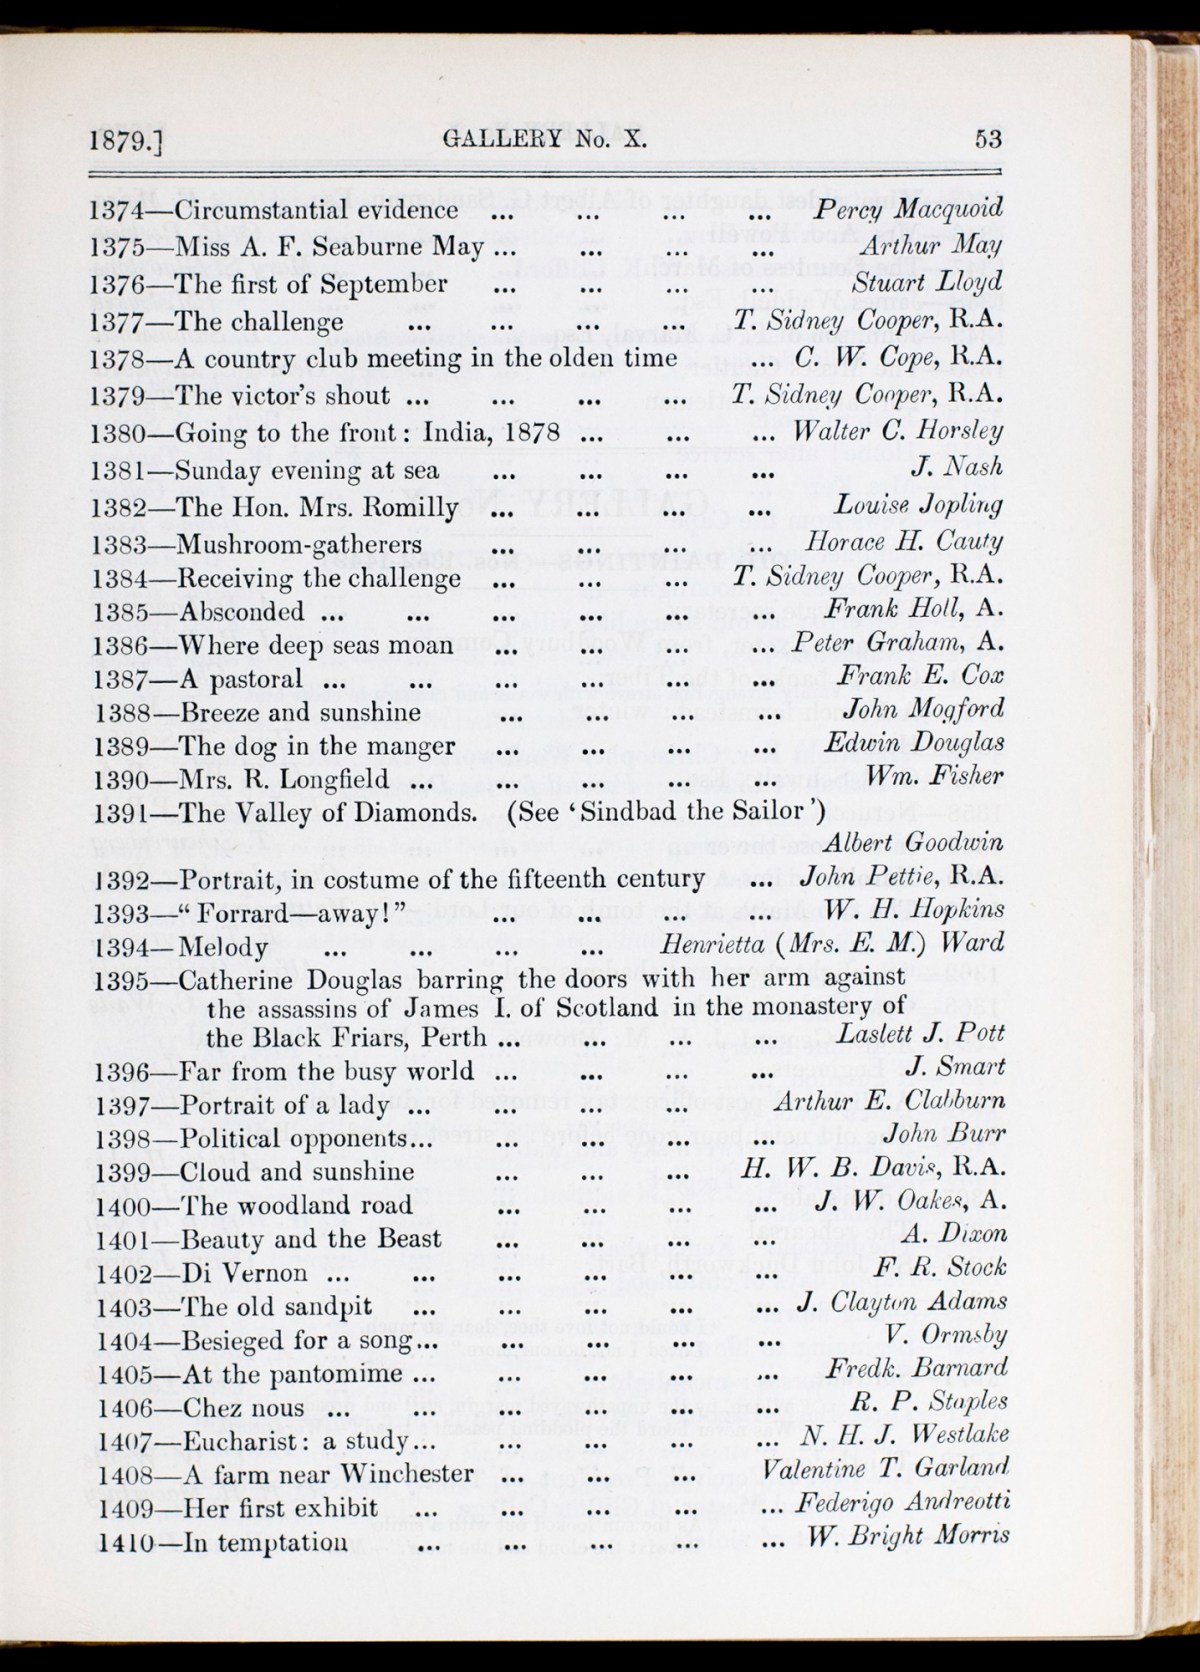 1879.] GALLERY No. X. 53
1374—Circumstantial evidence ... ... ... ... Percy Macquoid
1375—Miss A. F. Seaburne May ... ... ... ... Arthur May
1376—The first of September ... ... ... ... Stuart Lloyd
1377—The challenge ... ... ... ... T. Sidney Cooper, R.A.
1378—A country club meeting in the olden time ... C. W. Cope, R.A.
1379—The victor's shout ... ... ... ... T. Sidney Cooper, R.A.
1380—Going to the front: India, 1878 ... ... ... Walter C. Horsley
1381—Sunday evening at sea ... ... ... ... J. Nash
1382—The Hon. Mrs. Romilly ... ... ... ... Louise Jopling
1383—Mushroom-gatherers ... ... ... ... Horace H. Cauty
1384—Receiving the challenge ... ... ... T. Sidney Cooper, R.A.
1385—Absconded ... ... ... ... ... ... Frank Holl, A.
1386—Where deep seas moan ... ... ... ... Peter Graham, A.
1387—A pastoral ... ... ... ... ... Frank E. Cox
1388—Breeze and sunshine ... ... ... ... John Mogford
1389—The dog in the manger ... ... ... ... Edwin Douglas
1390—Mrs. R. Longfield ... ... ... ... ... Wm. Fisher
1391—The Valley of Diamonds. (See 'Sindbad the Sailor')
Albert Goodwin
1392—Portrait, in costume of the fifteenth century ... John Pettie, R.A.
1393—"Forrard—away!" ... ... ... ... W. H. Hopkins
1394—Melody ... ... ... ... Henrietta (Mrs. E. M.) Ward
1395—Catherine Douglas barring the doors with her arm against
the assassins of James I. of Scotland in the monastery of
the Black Friars, Perth ... ... ... ... Laslett J. Pott
1396—Far from the busy world ... ... ... ... J. Smart
1397—Portrait of a lady ... ... ... ... Arthur E. Clabburn
1398—Political opponents... ... ... ... ... John Burr
1399—Cloud and sunshine ... ... ... H. W. B. Davis, R.A.
1400—The woodland road ... ... ... ... J. W. Oakes, A.
1401—Beauty and the Beast ... ... ... ... A. Dixon
1402—Di Vernon ... ... ... ... ... ... F. R. Stock
1403—The old sandpit ... ... ... ... ... J. Clayton Adams
1404—Besieged for a song... ... ... ... ... V. Ormsby
1405—At the pantomime ... ... ... ... ... Fredk. Barnard
1406—Chez nous ... ... ... ... ... ... R. P. Staples
1407—Eucharist: a study... ... ... ... ... N. H. J. Westlake
1408—A farm near Winchester ... ... ... Valentine T. Garland
1409—Her first exhibit ... ... ... ... ... Federigo Andreotti
1410—In temptation ... ... ... ... ... W. Bright Morris